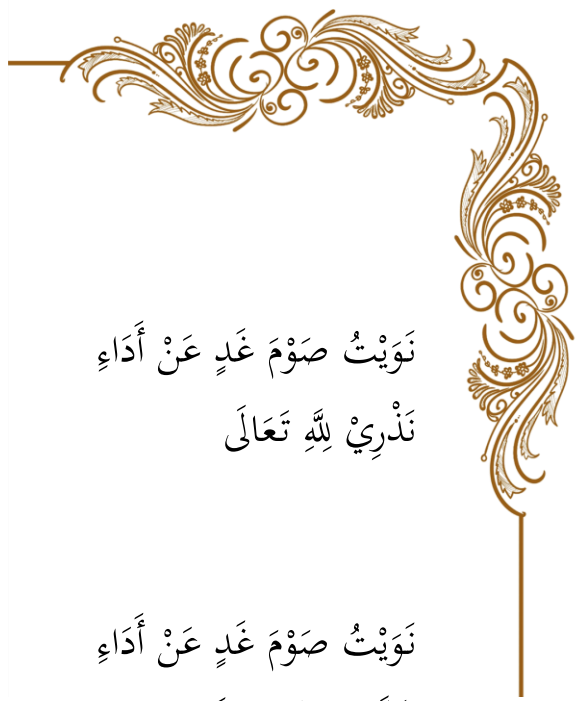 نَوَيْتُ صَوْمَ غَدٍ عَنْ أَدَاءِ
نَذْرِيْ لِلَّهِ تَعَالَى
نَوَيْتُ صَوْمَ غَدٍ عَنْ أَدَاءِ